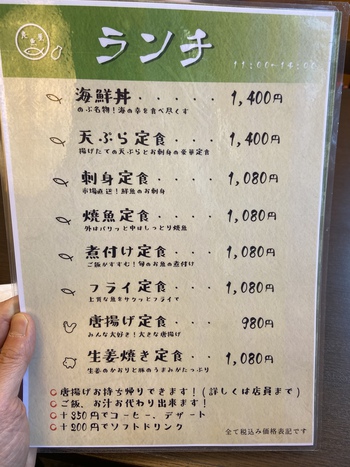 ランチ
11:00~14:00
海鮮丼・・・・・1,400円
のぶ名物！海の幸を食べ尽くす
天ぷら定食・・・1,400円
揚げたての天ぷらとお刺身の豪華定食
刺身定食・・・・1,080円
市場直送！鮮魚のお刺身
焼魚定食・・・・1,080円
外はパリッと中はしっとり焼魚
煮付け定食・・・1,080円
ご飯がすすむ！旬のお魚の煮付け
フライ定食・・・1,080円
上質な魚をサクッとフライで
唐揚げ定食・・・980円
みんな大好き！大きな唐揚げ
生姜焼き定食・・1,080円
生姜のかおりと豚のうまみがたっぷり
○唐揚げお持ち帰りできます！(詳しくは店員まで)
○ご飯、お汁お代わり出来ます！
○＋350円でコーヒー、デザート
○＋200円でソフトドリンク
全て税込み価格表記です